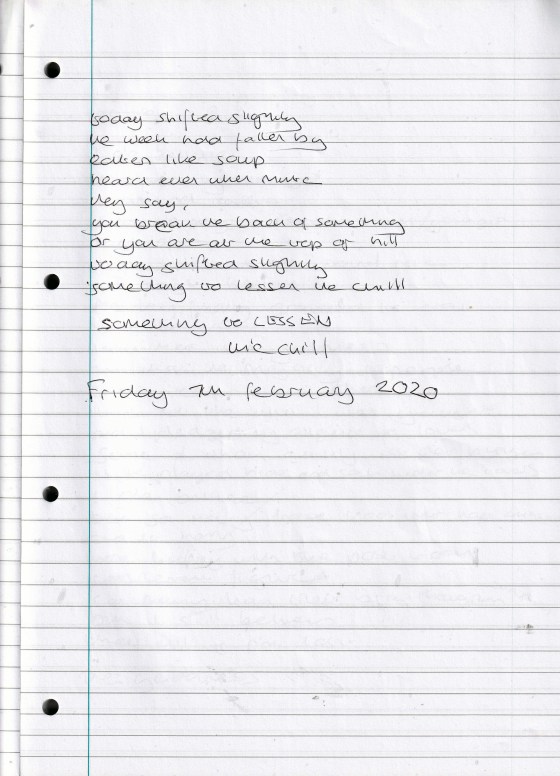 today shifted slightly
the week had fallen by
eaten like soup
heard even when music
they say,
you break the back of something
or you are at the top of hill
today shifted slightly
something to lessen the chill
something to LESSEN
the chill
Friday 7th february 2020